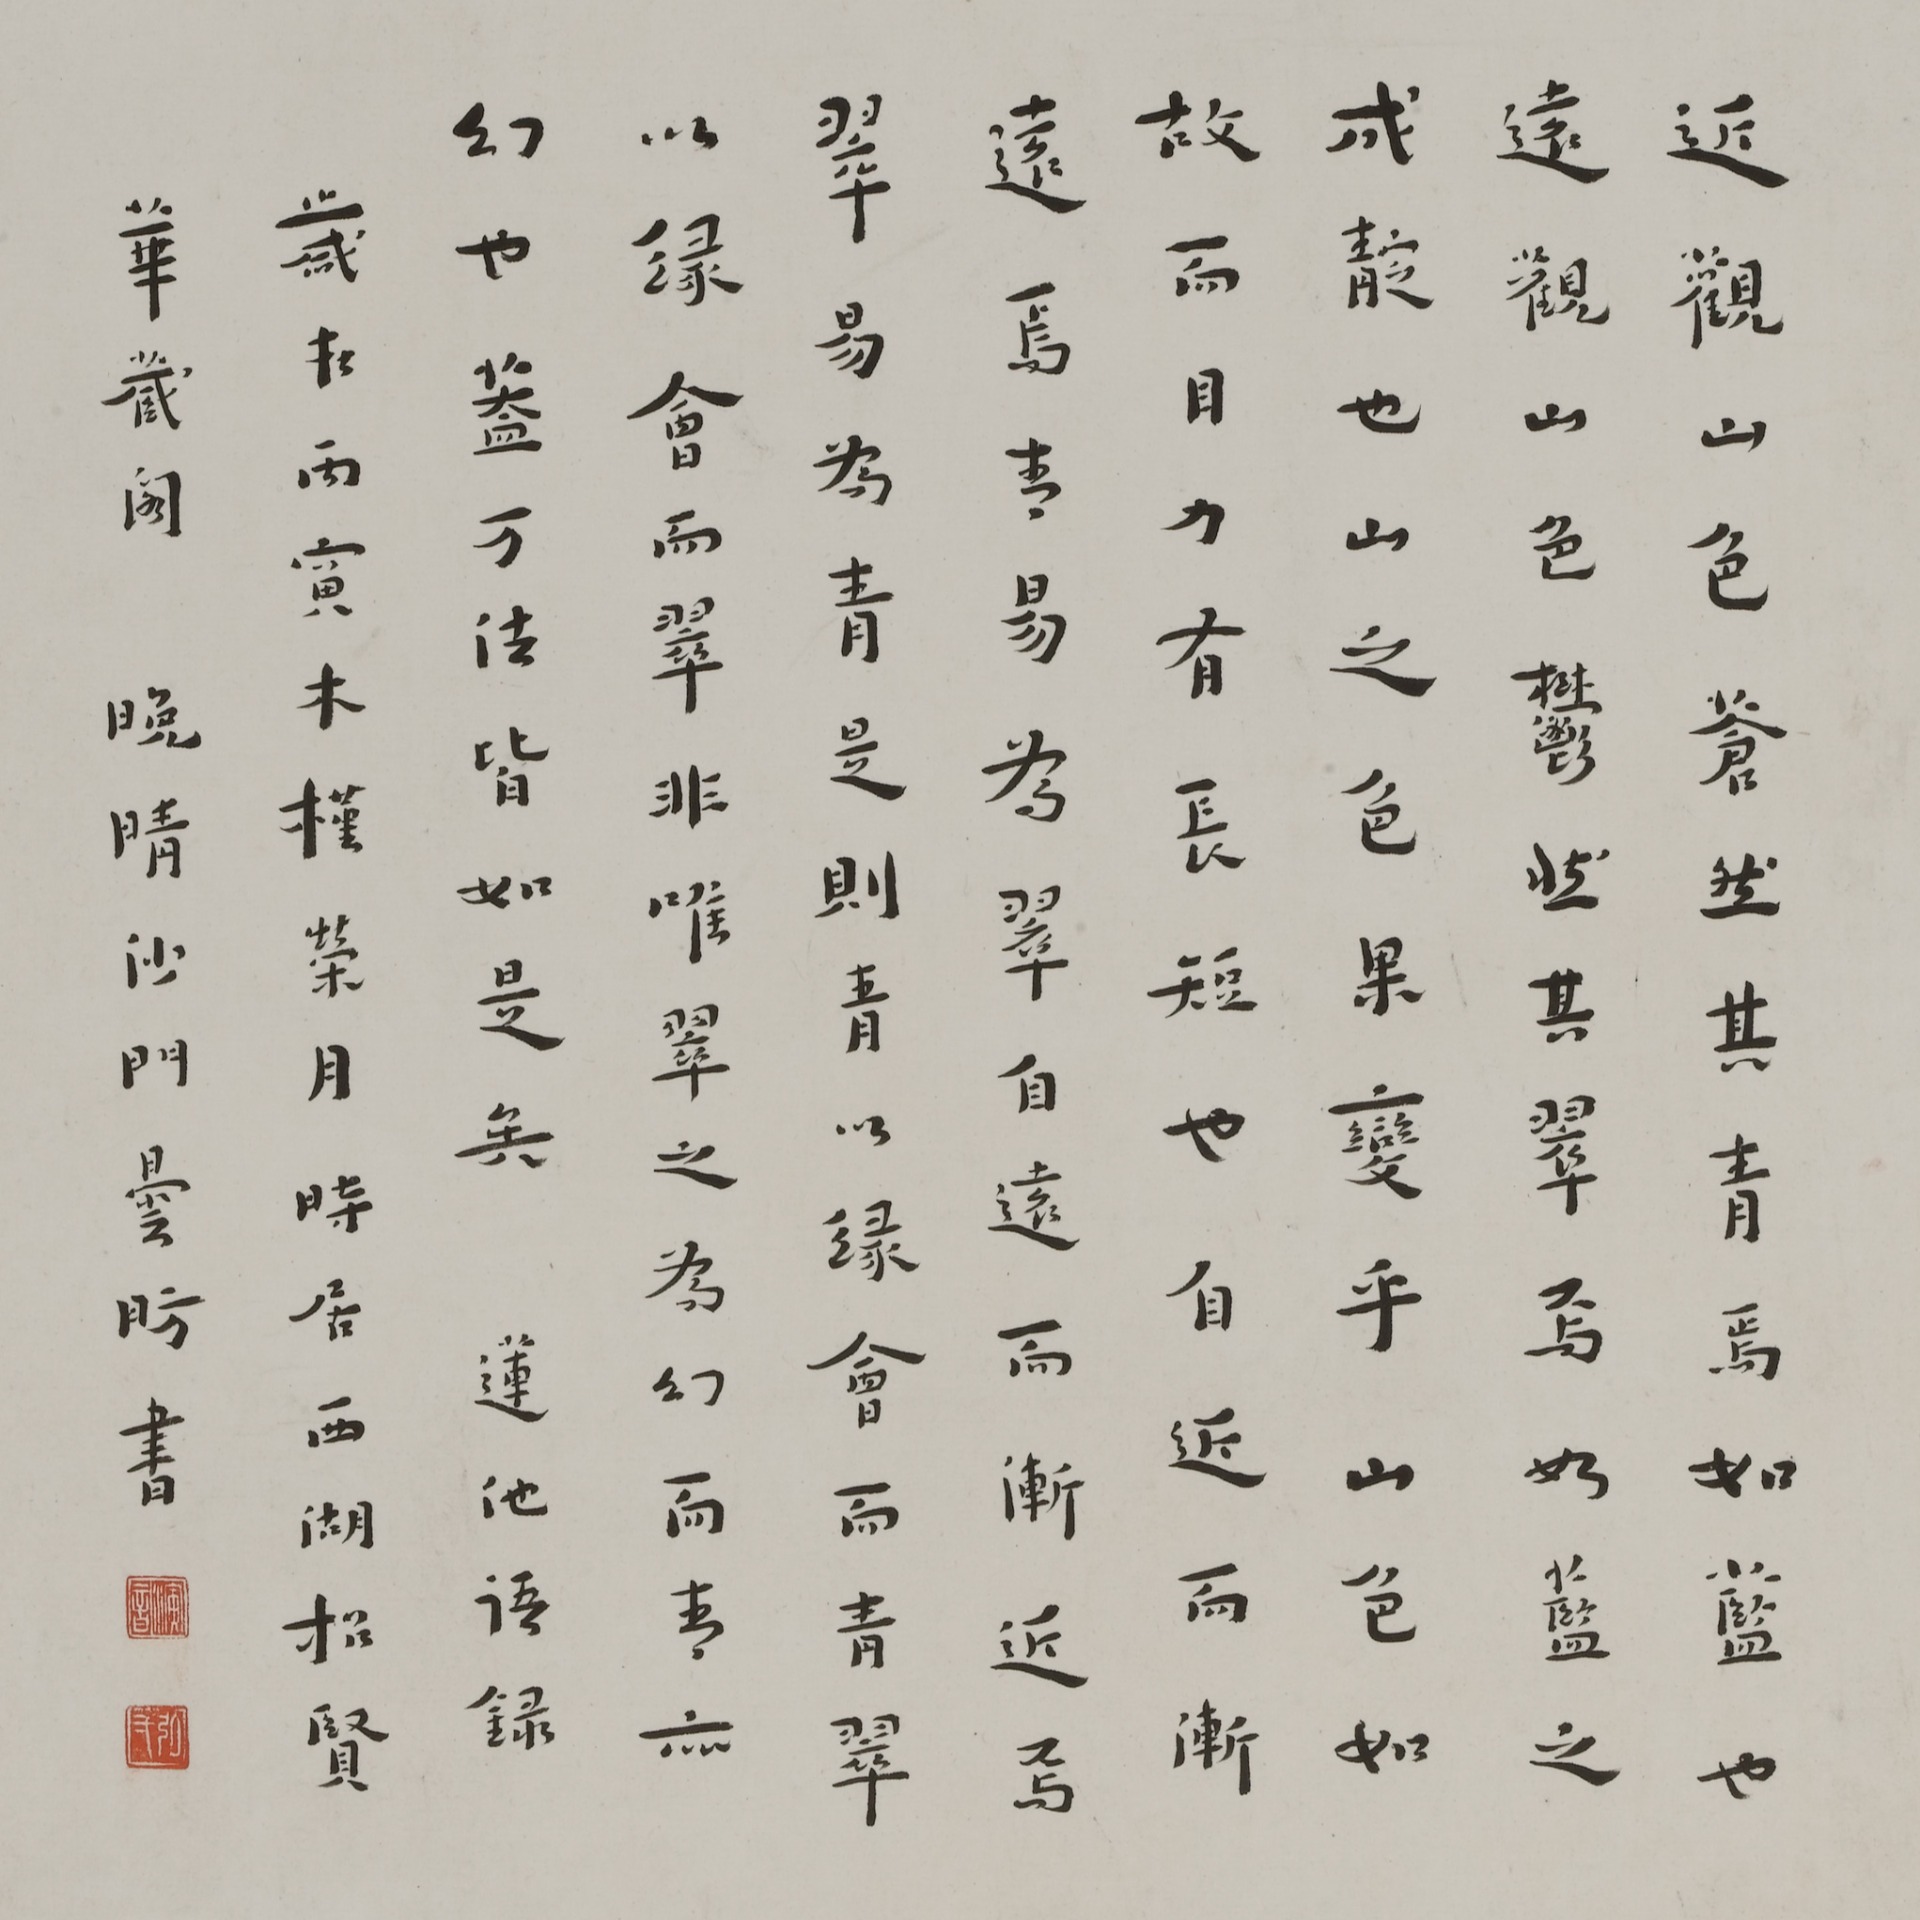 近觀山色蒼然其青焉如藍也
遠觀山色鬱然其翠焉如藍之
成靛也山之色果變乎山色如
故而目力有長短也自近而漸
遠焉青易為翠自遠而漸近焉
翠易為青是則青以緣會而青翠
以緣會而翠非唯翠之為幻而青亦
幻也蓋万法皆如是矣 蓮池語錄
歲在丙寅木槿榮月時居西湖招賢
華藏閣 晚晴沙門曇昉書
演音
弘一